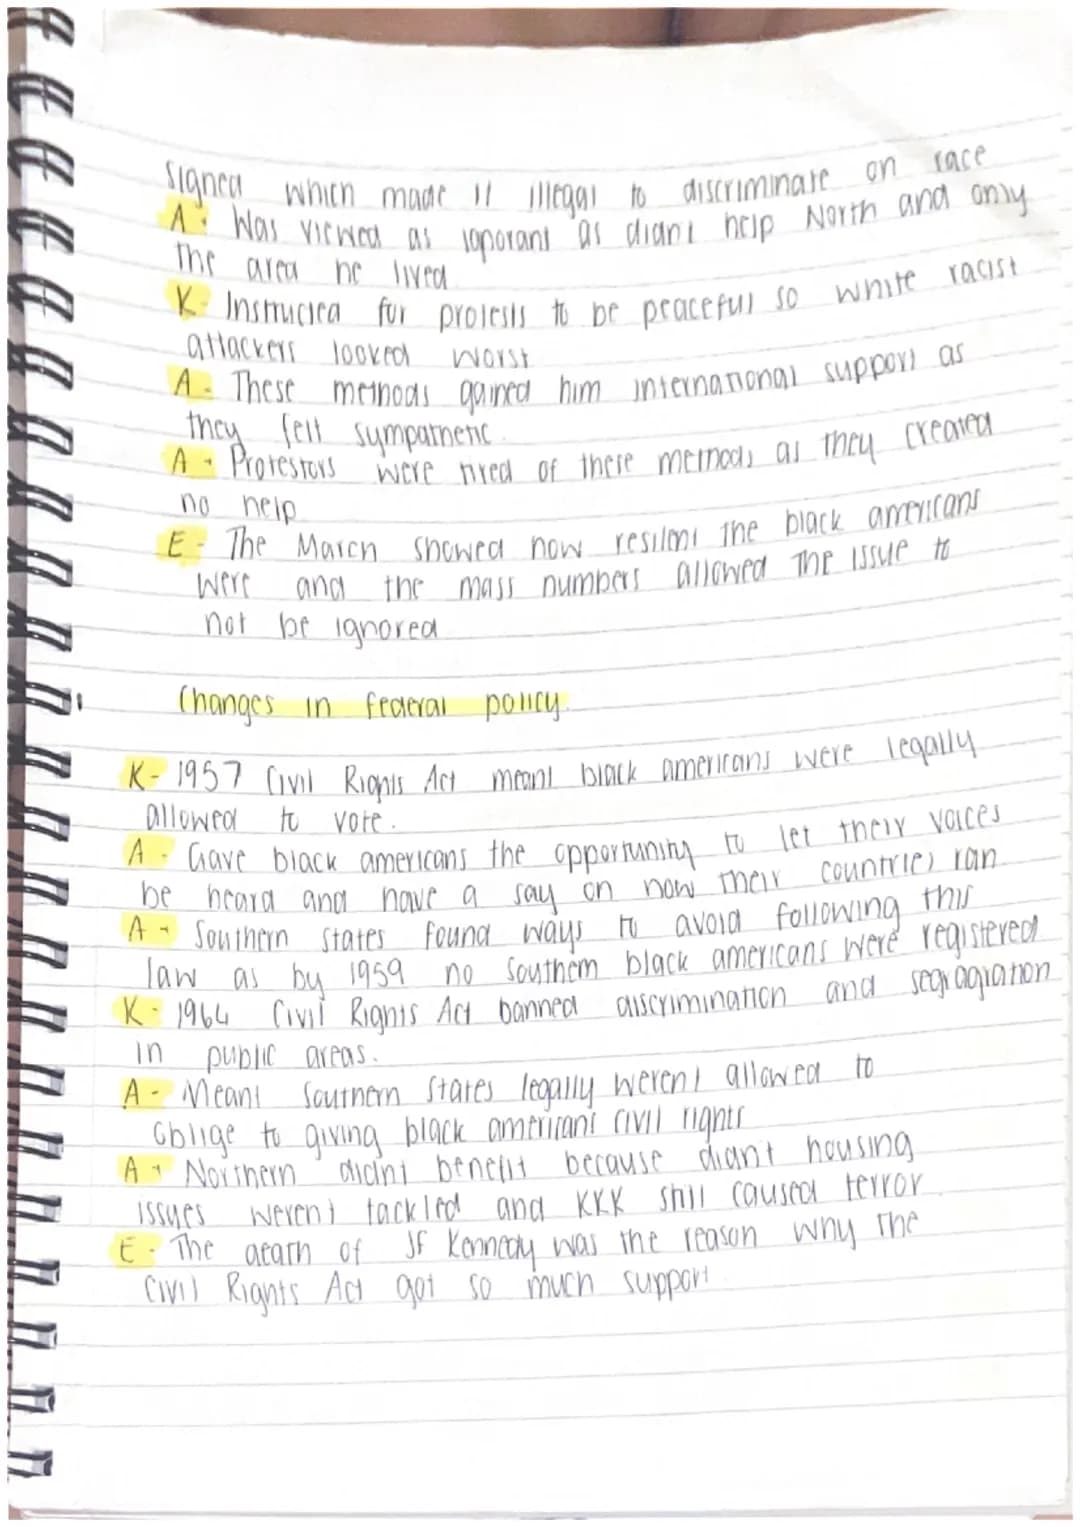 signed which made it illegal to discriminate on race
A - Was viewed as ignorant as didn't help North and only
the area he lived
K - Instructed for protests to be peaceful so white racist
attackers looked worst
A - These methods gained him international support as
they felt sympathetic.
A - Protestors were tired of these methods as they created
no help
E - The March showed how resilent the black americans
were and the mass numbers allowed the issue to
not be ignored
Changes in federal policy.
K - 1957 Civil Rights Act meant black americans were legally
allowed to vote.
A - Gave black americans the opportunity to let their voices
be heard and have a say on how their countries ran
A - Southern states found ways to avoid following this
law as by 1959 no southern black americans were registered
K - 1964 Civil Rights Act banned discrimination and segragration
in public areas.
A - Meant Southern states legally weren't allowed to
oblige to giving black americans civil rights
A - Northern didn't benefit because didn't housing
issues weren't tackled and KKK still caused terror
E - The death of JF Kennedy was the reason why the
Civil Rights Act got so much support